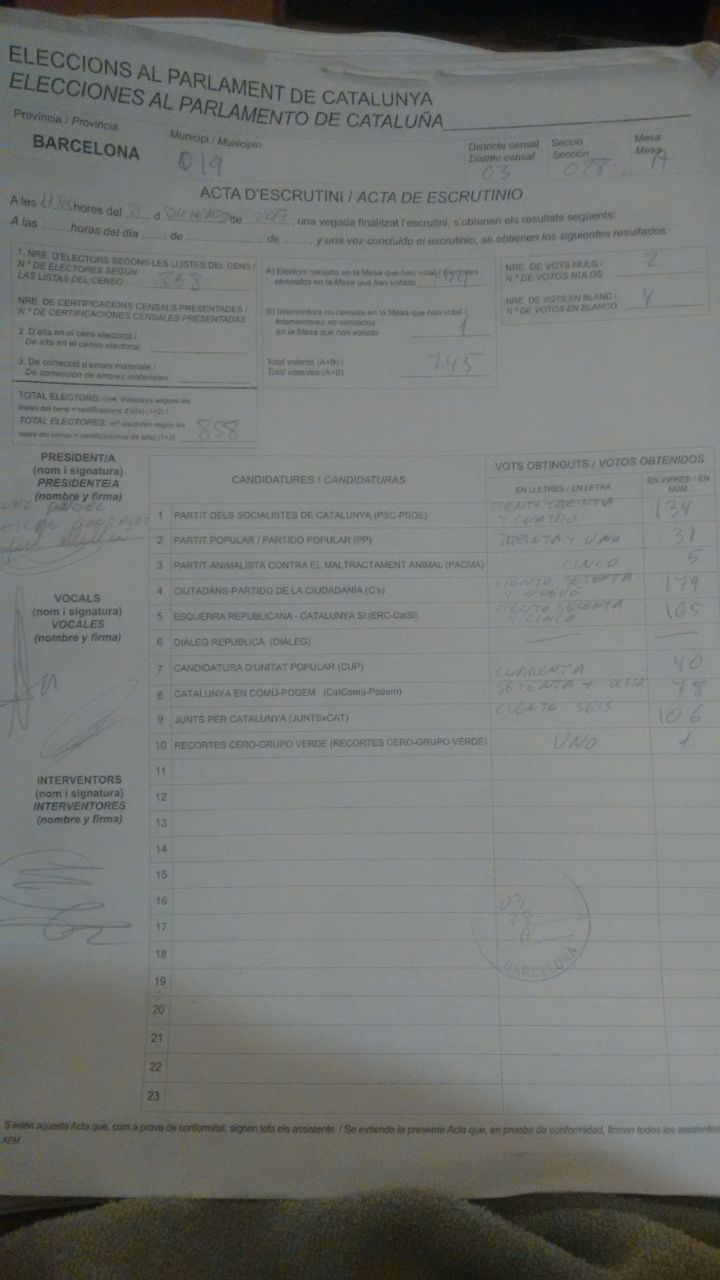 ELECCIONS AL PARLAMENT DE CATALUNYA
ELECCIONES AL PARLAMENTO DE CATALUÑA
Província / Provincia
BARCELONA
Municipi / Municipio
019
Districte censal
Distrito censal
03
Secció
Sección
028
Mesa
Mesa
A
ACTA D'ESCRUTINI / ACTA DE ESCRUTINIO
A les hores del 21 d DICIEMBRE de 2017, una vegada finalitzat l'escrutini, s'obtenen els resultats següents:
A las horas del día de de y una vez concluido el escrutinio, se obtienen los siguientes resultados:
1. NRE. D'ELECTORS SEGONS LES LLISTES DEL CENS /
N.º DE ELECTORES SEGÚN
LAS LISTAS DEL CENSO 858
NRE. DE CERTIFICACIONS CENSALS PRESENTADES /
N.º DE CERTIFICACIONES CENSALES PRESENTADAS
2. D'alta en el cens electoral /
De alta en el censo electoral:
3. De correcció d'errors materials /
De corrección de errores materiales:
TOTAL ELECTORS: (nre. d'electors segons les
llistes del cens + certificacions d'alta) (1+2) /
TOTAL ELECTORES: (nº electores según las
listas del censo + certificaciones de alta) (1+2) 858
A) Electors censats en la Mesa que han votat / Electores
censados en la Mesa que han votado 744
B) Interventors no censats en la Mesa que han votat /
Interventores no censados
en la Mesa que han votado 1
Total votants (A+B) /
Total votantes (A+B) 745
NRE. DE VOTS NULS /
N.º DE VOTOS NULOS 2
NRE. DE VOTS EN BLANC /
N.º DE VOTOS EN BLANCO 4
PRESIDENT/A
(nom i signatura)
PRESIDENTE/A
(nombre y firma)
VOCALS
(nom i signatura)
VOCALES
(nombre y firma)
INTERVENTORS
(nom i signatura)
INTERVENTORES
(nombre y firma)
CANDIDATURES / CANDIDATURAS
VOTS OBTINGUTS / VOTOS OBTENIDOS
EN LLETRES / EN LETRA
EN XIFRES / EN NÚM.
1 PARTIT DELS SOCIALISTES DE CATALUNYA (PSC-PSOE) CIENTO TREINTA Y CUATRO 134
2 PARTIT POPULAR / PARTIDO POPULAR (PP) TREINTA Y UNO 31
3 PARTIT ANIMALISTA CONTRA EL MALTRACTAMENT ANIMAL (PACMA) CINCO 5
4 CIUTADANS-PARTIDO DE LA CIUDADANÍA (C's) CIENTO SETENTA Y NUEVE 179
5 ESQUERRA REPUBLICANA - CATALUNYA SÍ (ERC-CatSí) CIENTO SESENTA Y CINCO 165
6 DIÀLEG REPUBLICÀ (DIÀLEG) — —
7 CANDIDATURA D'UNITAT POPULAR (CUP) CUARENTA 40
8 CATALUNYA EN COMÚ-PODEM (CatComú-Podem) SETENTA Y OCHO 78
9 JUNTS PER CATALUNYA (JUNTSxCAT) CIENTO SEIS 106
10 RECORTES CERO-GRUPO VERDE (RECORTES CERO-GRUPO VERDE) UNO 1
11
12
13
14
15
16
17
18
19
20
21
22
23
03
28
A
BARCELONA
S'estén aquesta Acta que, com a prova de conformitat, signen tots els assistents. / Se extiende la presente Acta que, en prueba de conformidad, firman todos los asistentes
AEM